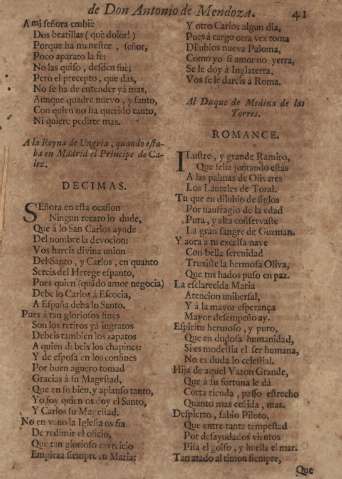 de Don Antonio de Mendoza. 41
A mi señora embie
Dos beatillas (què dolor!)
Porque ha menester, señor,
Poco aparato la fè:
No las quiso, desden fuè;
Pero el precepto, que das,
No se ha de entender yà mas,
Aunque quadre nuevo, y santo,
Con quien no ha querido canto,
Ni quiere pedirte mas.
A la Reyna de Ungria, quando esta-
ba en Madrid el Principe de Ga-
lez.
DECIMAS.
SEñora en esta ocasion
Ningun recato lo dude,
Que à lo San Carlos ayude
Del nombre la devocion:
Vos hareis divina union
Del Santo, y Carlos, en quanto
Sereis del Herege espanto,
Pues quien (quãdo amor negocia)
Debe lo Carlos à Escocia,
A España deba lo Santo.
Pues à tan gloriosos fines
Son los retiros yà ingratos
Debeis tambien los zapatos
A quien debeis los chapines:
Y de esposa en los confines
Por buen aguero tomad
Gracias à su Magestad,
Que en su bien, y aplauso tanto,
Yo soy quien os doy el Santo,
Y Carlos su Magestad.
No en vano la Iglesia os fia
De redimir el oficio,
Que tan glorioso exercicio
Empieza siempre en Maria;
Y otro Carlos algun dia,
Pueva cargo otra vez toma
Dilubios nueva Paloma,
Como yo si amor no yerra,
Se le doy à Inglaterra,
Vos se le dareis à Roma.
Al Duque de Medina de las
Torres.
ROMANCE.
ILustre, y grande Ramiro,
Que feliz juntando estàs
A las palmas de Olivares
Los Laureles de Toral.
Tu que en dilubio de siglos
Por naufragio de la edad
Pura, y alta conservaste
La gran sangre de Guzman.
Y aora à tu excelsa nave
Con bella serenidad
Truxiste la hermosa Oliva,
Que tus hados puso en paz.
La esclarecida Maria
Atencion unibersal,
Y à la mayor esperança
Mayor desempeño ay.
Espiritu hermoso, y puro,
Que en dudosa humanidad,
Si es modestia el ser humana,
No es duda lo celestial.
Hija de aquel Varon Grande,
Que à su fortuna le dà
Corta rienda, passo estrecho
Quanto mas cedida, mas.
Despierto, sabio Piloto,
Que entre tanta tempestad
Por desayudados vientos
Pisa el golfo, y huella el mar.
Tan atado al timon siempre,
Que